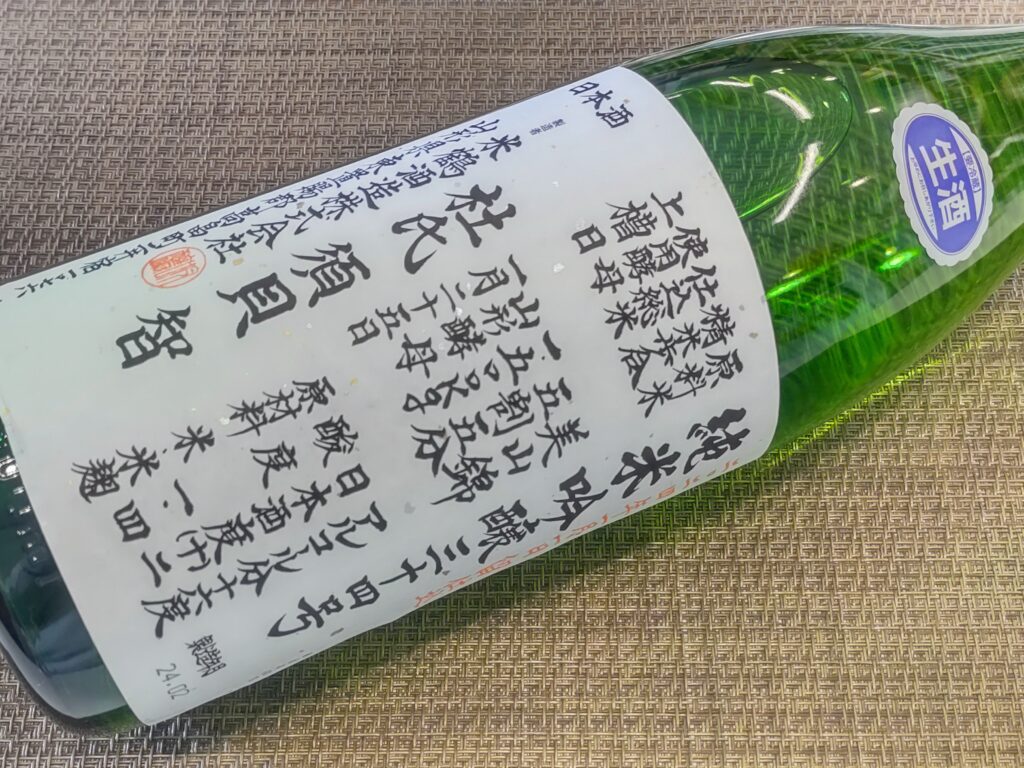 要冷蔵
生酒
純米吟醸三十四号
原料米 美山錦
精米歩合 五割五分
仕込総米
使用酵母 山形酵母
上槽日 一月二十五日
アルコール分十六度
日本酒度(+)二
酸度 一.四
原材料 米 米麹
杜氏 須貝智
日本酒
製造者
米鶴酒造株式会社
山形県東置賜郡高畠町二井宿一一七六
24.02